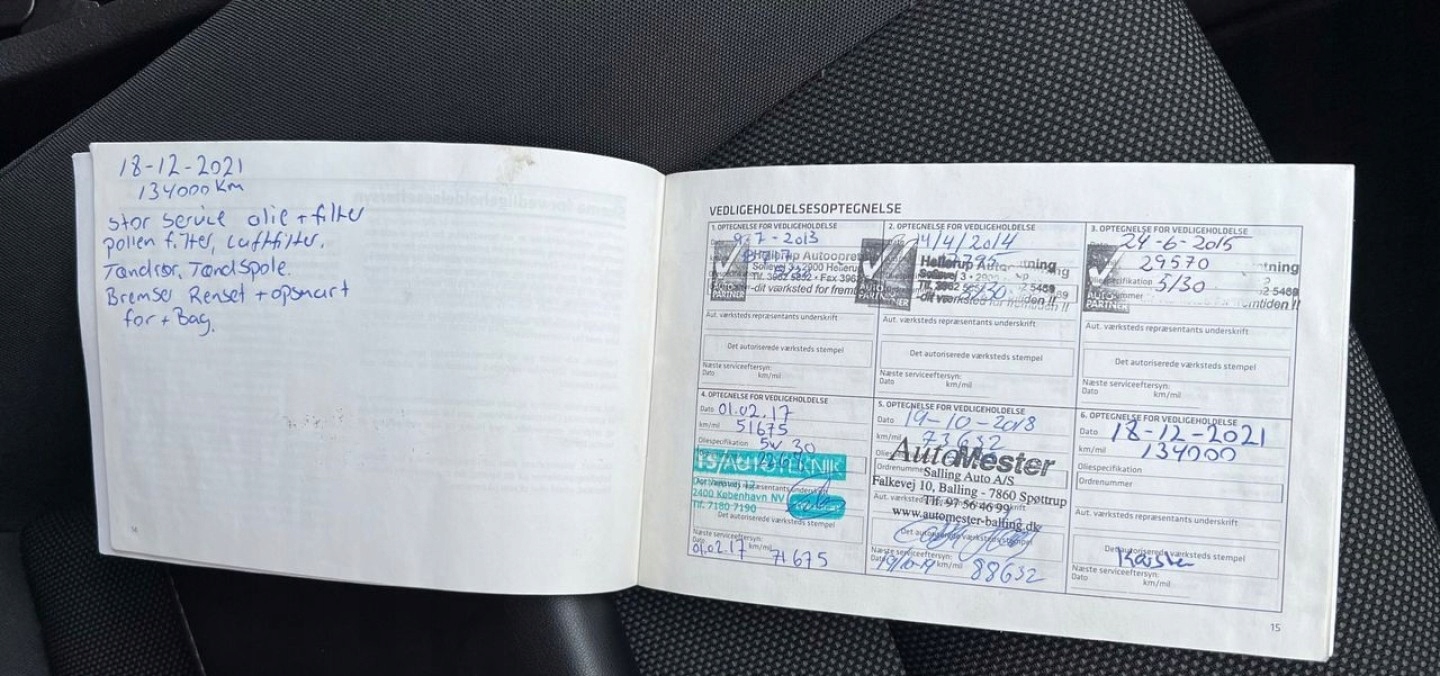 18-12-2021
134000 Km
stor service olie + filter
pollen filter, Luftfilter.
Tændrør, Tændspole.
Bremser Renset + opsmart
for + Bag.
VEDLIGEHOLDELSESOPTEGNELSE
1. OPTEGNELSE FOR VEDLIGEHOLDELSE
9-7-2013
Hellerup
2900 Hellerup
AUTO
PARTNER
-dit værksted for
Aut. værksteds repræsentants underskrift
Det autoriserede værksteds stempel
Næste serviceeftersyn:
Dato km/mil
2. OPTEGNELSE FOR VEDLIGEHOLDELSE
14/4/2014
Hellerup
Sofievej 3 • 2900
5/30
PARTNER
-dit værksted for
Aut. værksteds repræsentants underskrift
Det autoriserede værksteds stempel
Næste serviceeftersyn:
Dato km/mil
3. OPTEGNELSE FOR VEDLIGEHOLDELSE
24-6-2015
29570
5/30
AUTO
PARTNER
fremtiden !!
Aut. værksteds repræsentants underskrift
Det autoriserede værksteds stempel
Næste serviceeftersyn:
Dato km/mil
4. OPTEGNELSE FOR VEDLIGEHOLDELSE
Dato 01.02.17
km/mil 51675
Oliespecifikation 5W 30
2400 København NV
Tlf. 7180 7190
Det autoriserede værksteds stempel
Næste serviceeftersyn:
01.02.17 km/mil 71675
5. OPTEGNELSE FOR VEDLIGEHOLDELSE
Dato 19-10-2018
km/mil 73632
AutoMester
Ordrenummer
Salling Auto A/S
Falkevej 10, Balling - 7860 Spøttrup
Tlf. 97 56 46 99
www.automester-balling.dk
Næste serviceeftersyn:
19/10-19 km/mil 88632
6. OPTEGNELSE FOR VEDLIGEHOLDELSE
Dato 18-12-2021
km/mil 134000
Oliespecifikation
Ordrenummer
Aut. værksteds repræsentants underskrift
Det autoriserede værksteds stempel
Karsten
Næste serviceeftersyn:
Dato km/mil
15